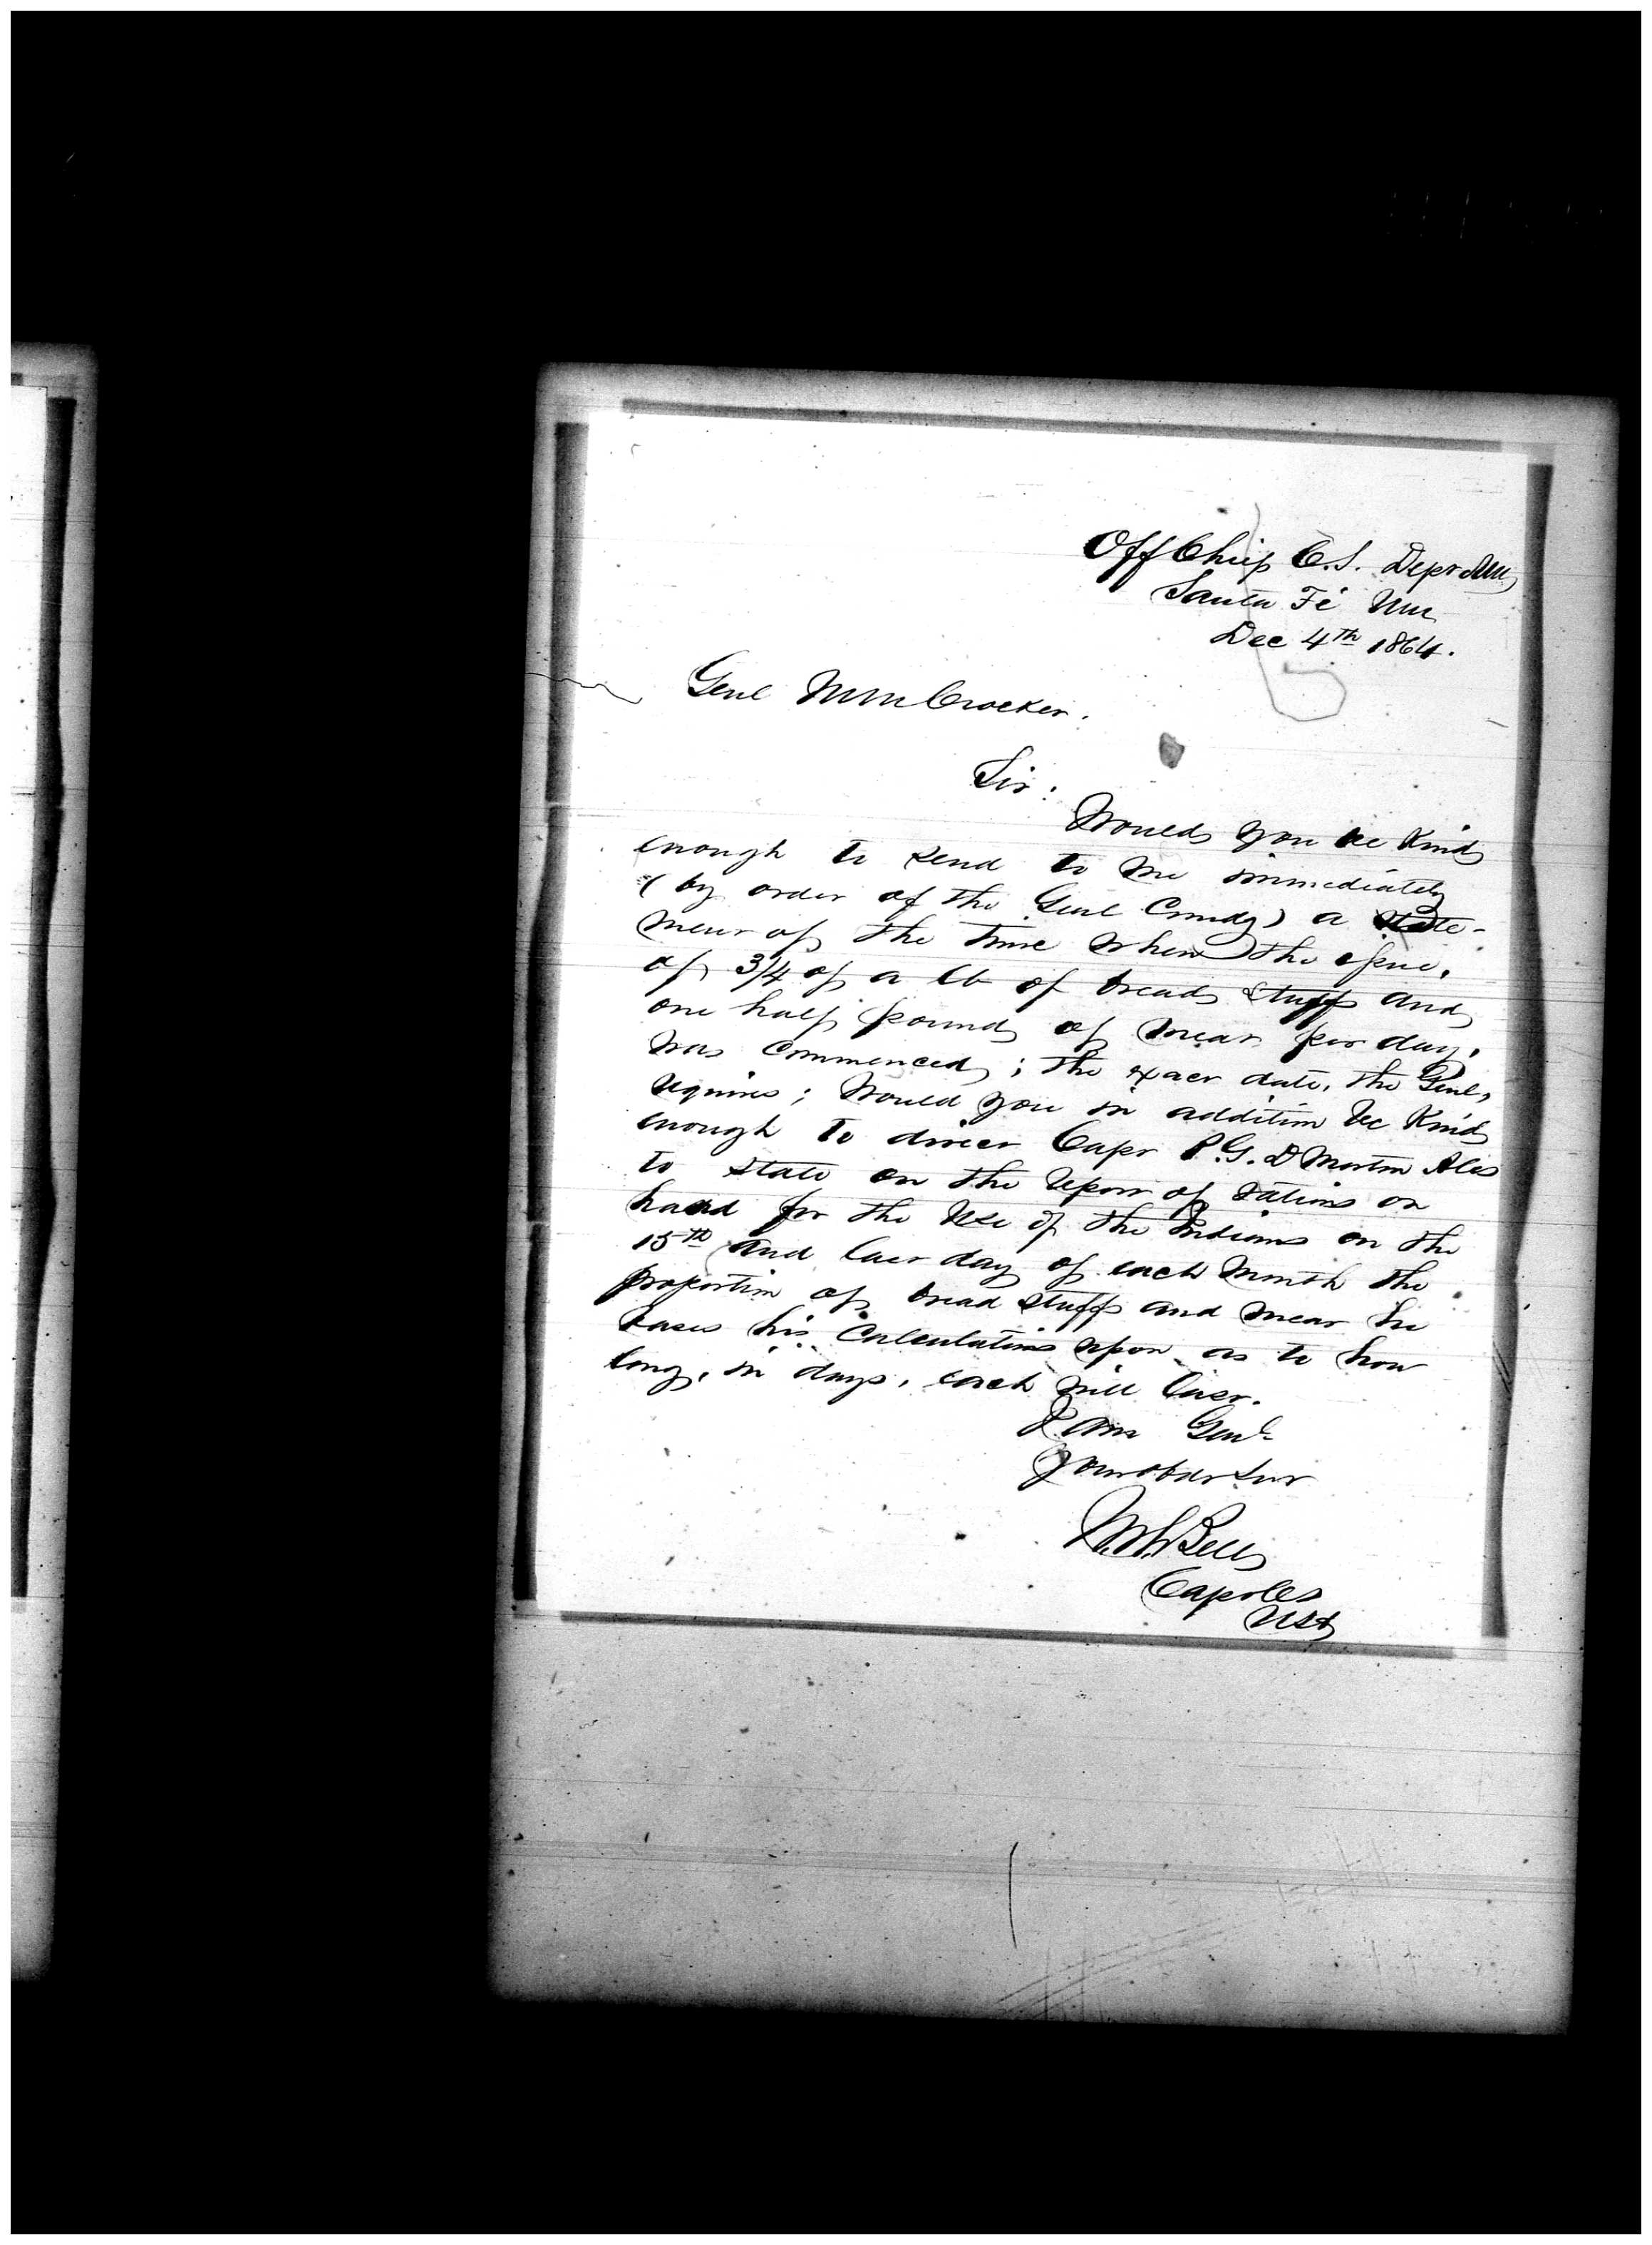 Off Chief C.S. Dept NM
Santa Fé NM
Dec 4th 1864.
Genl M M Crocker.
Sir:
Would you be kind
enough to send to me immediately
(by order of the Genl Comdg) a state-
ment of the time when the issue,
of 3/4 of a lb of bread stuff and
one half pound of meat per day,
was commenced; the exact date, the Genl,
requires; Would you in addition be kind
enough to direct Capt P.G.D Morton
to state on the report of rations on
hand for the use of the Indians on the
15th and last day of each month the
proportion of bread stuff and meat he
bases his calculations upon as to how
long, in days, each will last.
I am Genl
Your obdt Svt
W.H. Bell
Capt CS
USA